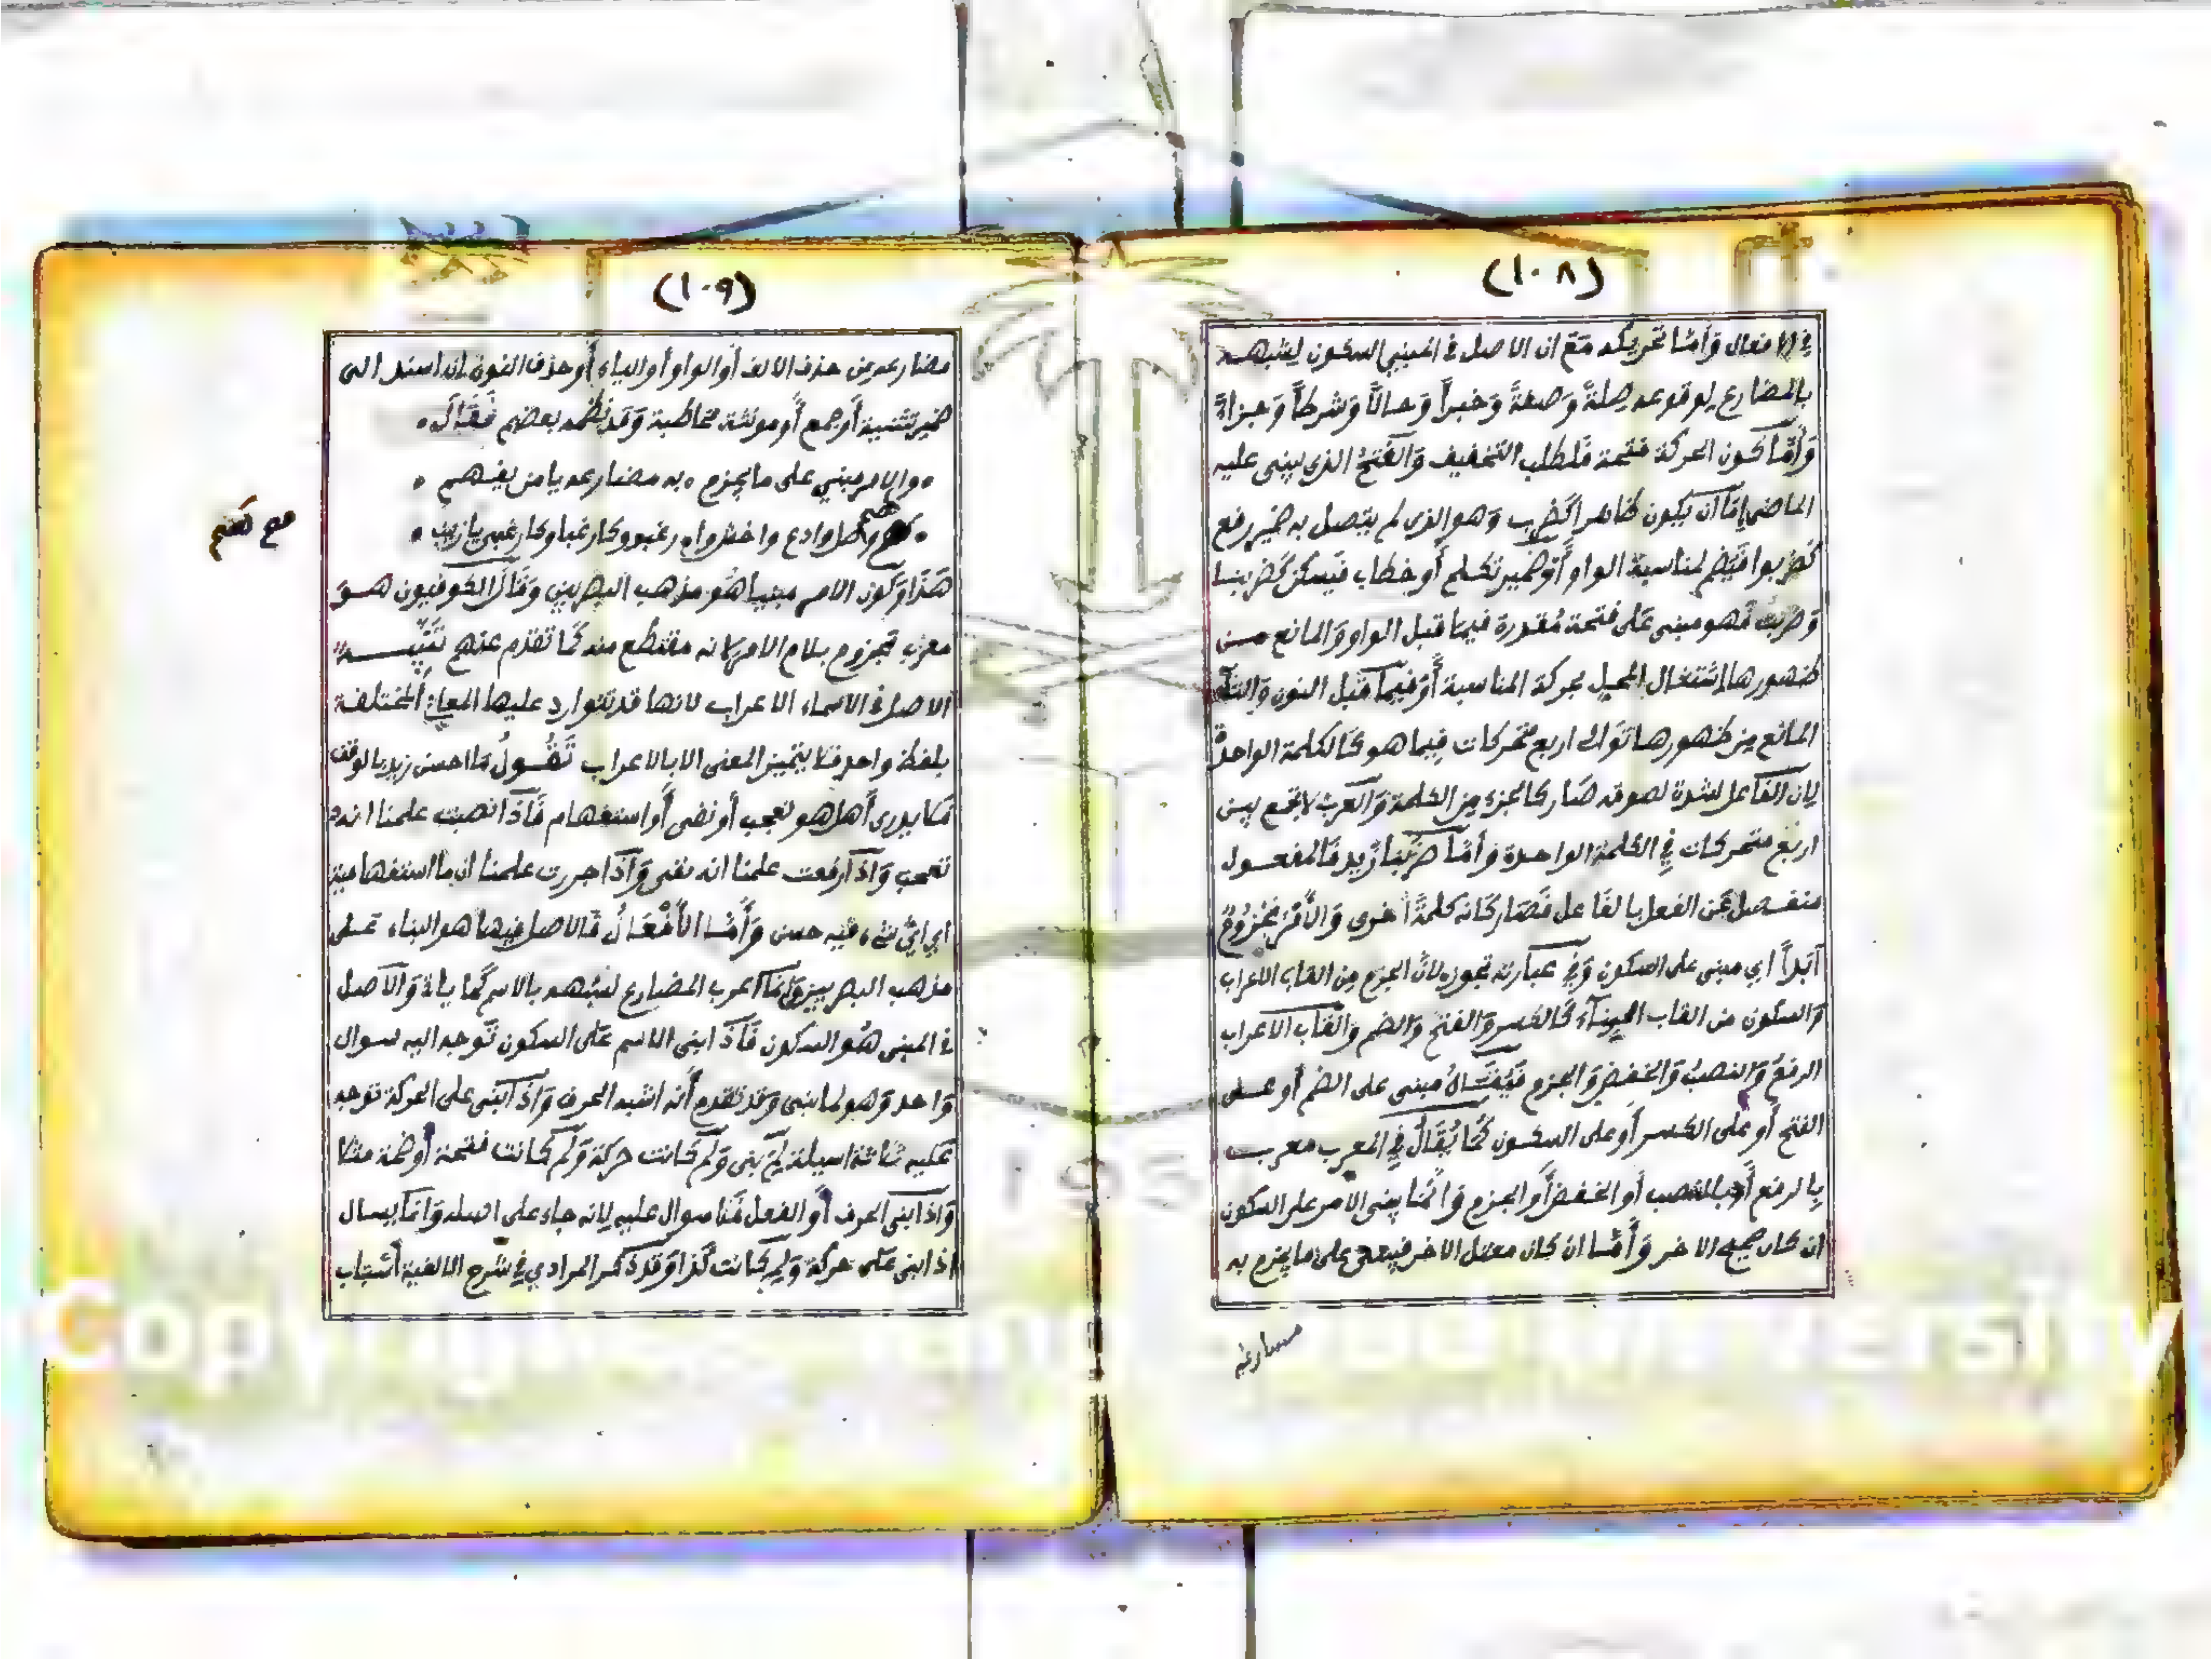 (١٠٨)
في الافعال وَأمَّا تحريكه مَعَ ان الاصل في المبني السكون لشبهه
بالمضارع لوقوعه صِلةً وَصفةً وَخبراً وَحالاً وَشرطاً وَجزاءً
وَأمَّا كون الحركة فتحة فَلطلب التخفيف وَالفَتحُ الذي يبنى عليه
الماضي إمّا أن يكون ظاهراً كَضرب وَهو الذي لم يتصل به ضمير رفع
كَضربوا فَيضم لمناسبة الواو أَوْ ضمير تكلم أو خطاب فَيسكن كَضربنا
وَضربتُ فَهو مبني عَلى فتحة مُقدرة فيما قبل الواو وَالمانع من
ظهورها اشتغال المحل بحركة المناسبة أَوْ فيما قَبل النون وَالتاء
المانع مِن ظهورها تَوالى اربع متحركات فِيما هو كَالكلمة الواحدة
لِان الفَاعل لشدة لصوقه صَار كالجزء مِن الكلمة وَالعَرب لا تجمع بين
اربع متحركات فِي الكلمة الواحدة وَأمَّا ضرَبَنا زَيد فَالمفعول
منفصل عَن الفعل بالفَاعل فَصَار كَانه كلمةً اخرى وَالأَمْرُ مَجْزُومٌ
أبَداً اي مبني على السكون وَفِي عبَارته تجوز لانَّ الجزم مِن القاب الاعراب
وَالسكون من القاب البِناءِ كَالكسر وَالفتح وَالضم وَالقَاب الاعراب
الرفعُ وَالنصبُ وَالخفض وَالجزم فَيُقَالُ مبني على الضم أو على
الفتح أو عَلى الكسر أو على السكون كَمَا يُقَالُ فِي المعرب معرب
بِالرفع أو بالنصب أو الخفض أو الجزم وَانَّمَا يبنى الامر على السكون
ان كان صحيح الاخر وَأمَّا ان كان معتل الاخر فيبنى على ما يجزم به
مضارعه
(١٠٩)
مضارعه من حذف الالف أَو الواو أو الياء أو حذف النون ان اسند الى
ضمير تثنية أو جمع أو مونثة مخاطبة وَقد نظمه بعضهم فَقَال
والامر مبني على ما يجزم به مضارعه يا من يفهم
وصل وادع واخش وارغبوا وكارغبا وكارغبي يا زينب
هَذَا وَكون الامر مبنياً هُو مذهب البصريين وَقَالَ الكوفيون هو
معرب مجزوم بلام الامر لانه مقتطع منه كَمَا تقدم عنهم تَنْبِيه
الاصل في الاسماء الاعراب لانها قد تتوارد عليها المعاني المختلفة
بلفظ واحد فَلا يتميز المعنى الا بالاعراب تَقُولُ مَا احسن زيد بالوقف
فَلا يدرى أهل هو تعجب أو نفي أو استفهام فَاذَا نصبت علمنا انه
تعجب وَاذَا رفعت علمنا انه نفي وَاذَا جررت علمنا ان ما استفهامية
اي ايّ شيء فيه حسن وَأمَّا الأفْعَالُ فَالاصل فيها هو البناء عَلى
مذهب البصريين وَإنما اعرب المضارع لشبهه بالاسم كَمَا ياتي وَالاصل
في المبني هُو السكون فَاذَا بني الاسم عَلى السكون تَوجه اليه سوال
وَاحد وَهو لما بنى وَقد تَقدم أنه اشبه الحرف وَاذَا بنى على الحركة توجه
عَليه ثَلاثة اسيلة لِمَ بني وَلم كَانت حركة وَلم كَانت فتحة أو ضمة مثلا
وَاذَا بني الحرف أو الفعل فَلا سوال عليه لِانه جاء على اصله وَانما يسال
اذا بني عَلى حركة وَلِم كَانت كَذا وَقد ذكر المرادي في شَرح الالفية أسْبَاب